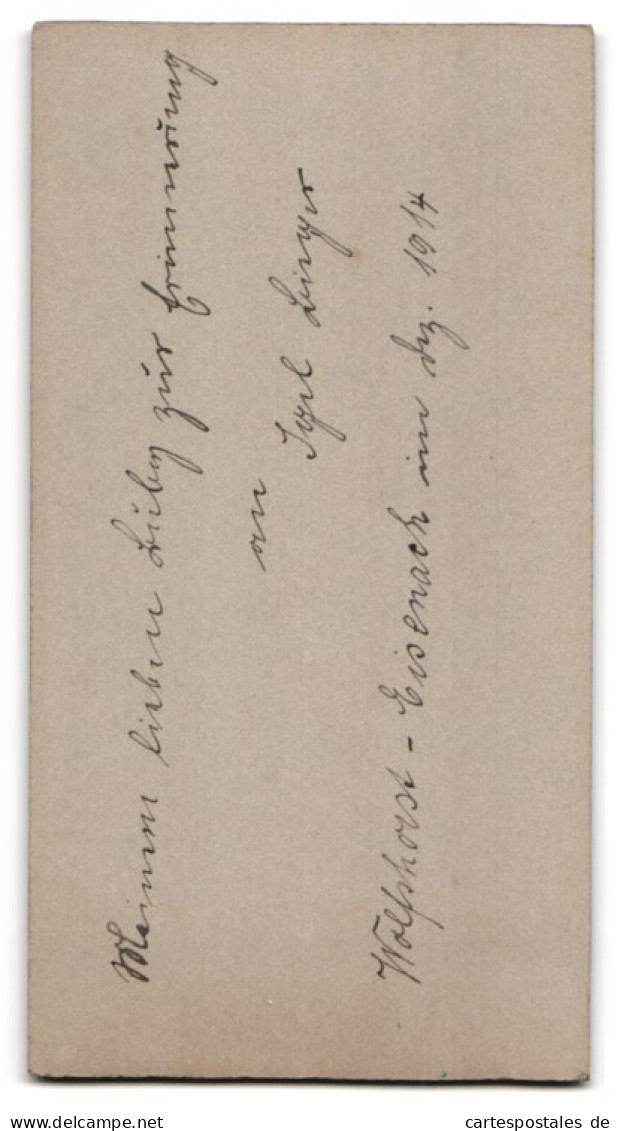 Meinem lieben Bubi zur Erinnerung
an
Wolfshorst - Eisenach im Dez. 1914
www.delcampe.net
cartespostales de